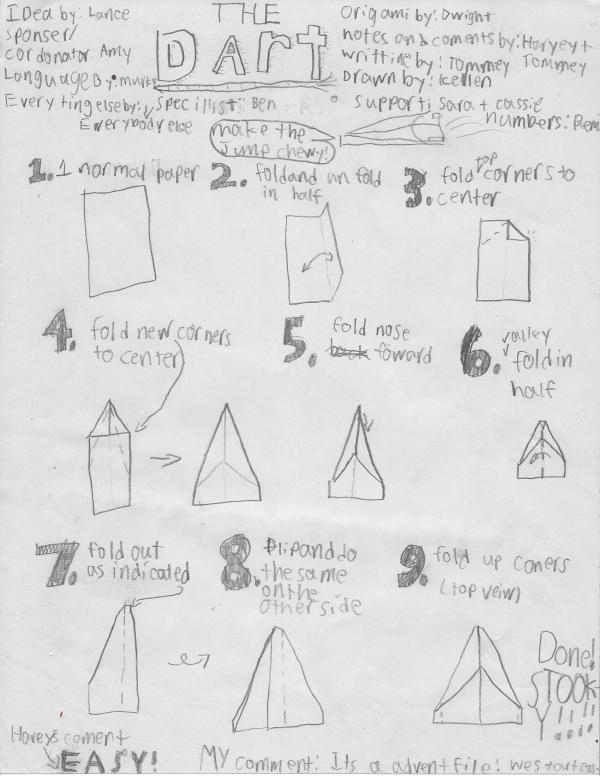 IDea by: Lance
sponser/
cordonator: Amy
Language by: murky
Every ting else by:
Everybody else
THE
DArt
specillist: Ben
Origami by: Dwight
notes and coments by: Harvey +
writting by: Tommey Tommey
Drawn by: Kellen
support: sara + cassie
numbers: Remi
make the
jump chewy!
1. 1 normal paper
2. fold and un fold
in half
3. fold top corners to
center
4. fold new corners
to center
5. fold nose
back foward
6. valley
fold in
half
7. fold out
as indicated
8. flip and do
the same
on the
other side
9. fold up coners
(top veiw)
Done!
STOOKY
!!!!
Harveys coment
EASY!
MY comment: Its a advent file!